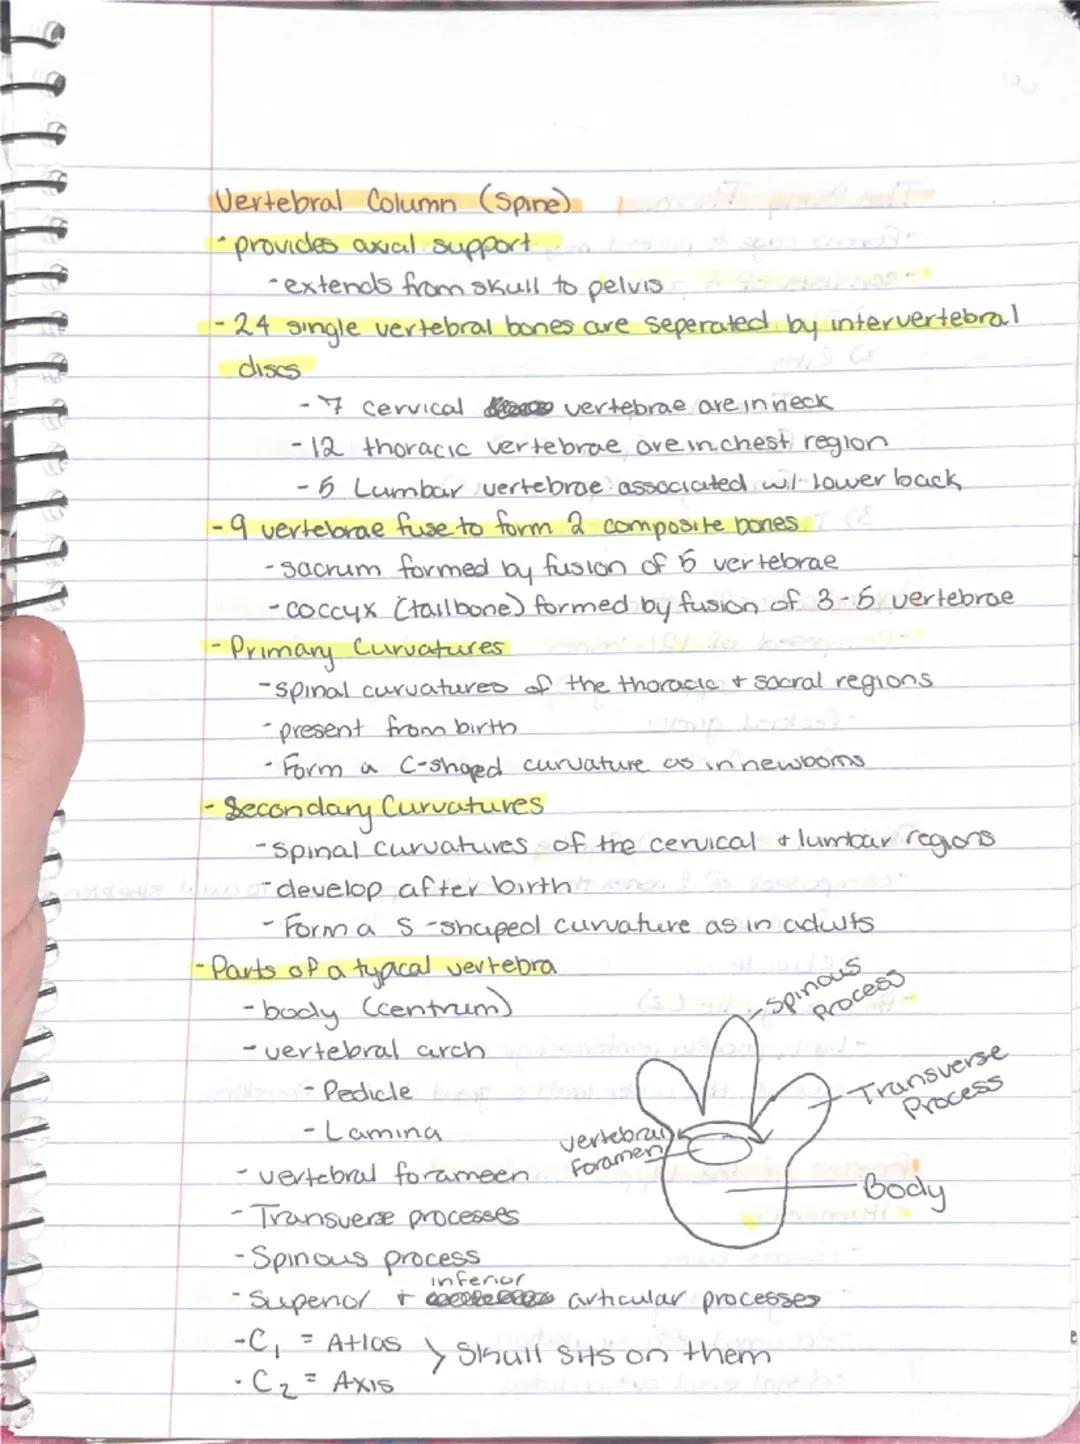 Vertebral Column (Spine)
- provides axial support
- extends from skull to pelvis
- 24 single vertebral bones are seperated by intervertebral
discs
- 7 cervical vertebrae are in neck
- 12 thoracic vertebrae are in chest region
- 5 Lumbar vertebrae associated w/ lower back
- 9 vertebrae fuse to form 2 composite bones
- sacrum formed by fusion of 5 vertebrae
- coccyx (tailbone) formed by fusion of 3-5 vertebrae
- Primary Curvatures
- spinal curvatures of the thoracic + sacral regions
- present from birth
- Form a C-shaped curvature as in newborns
- Secondary Curvatures
- spinal curvatures of the cervical + lumbar regions
- develop after birth
- Form a S-shaped curvature as in adults
- Parts of a typacal vertebra
- body (centrum)
- vertebral arch
- Pedicle
- Lamina
- vertebral forameen
- Transverse processes
- Spinous process
- Superior + inferior articular processes
- C1 = Atlas
- C2 = Axis
> Skull sits on them
Spinous
Process
Transverse
Process
vertebral
Foramen
Body